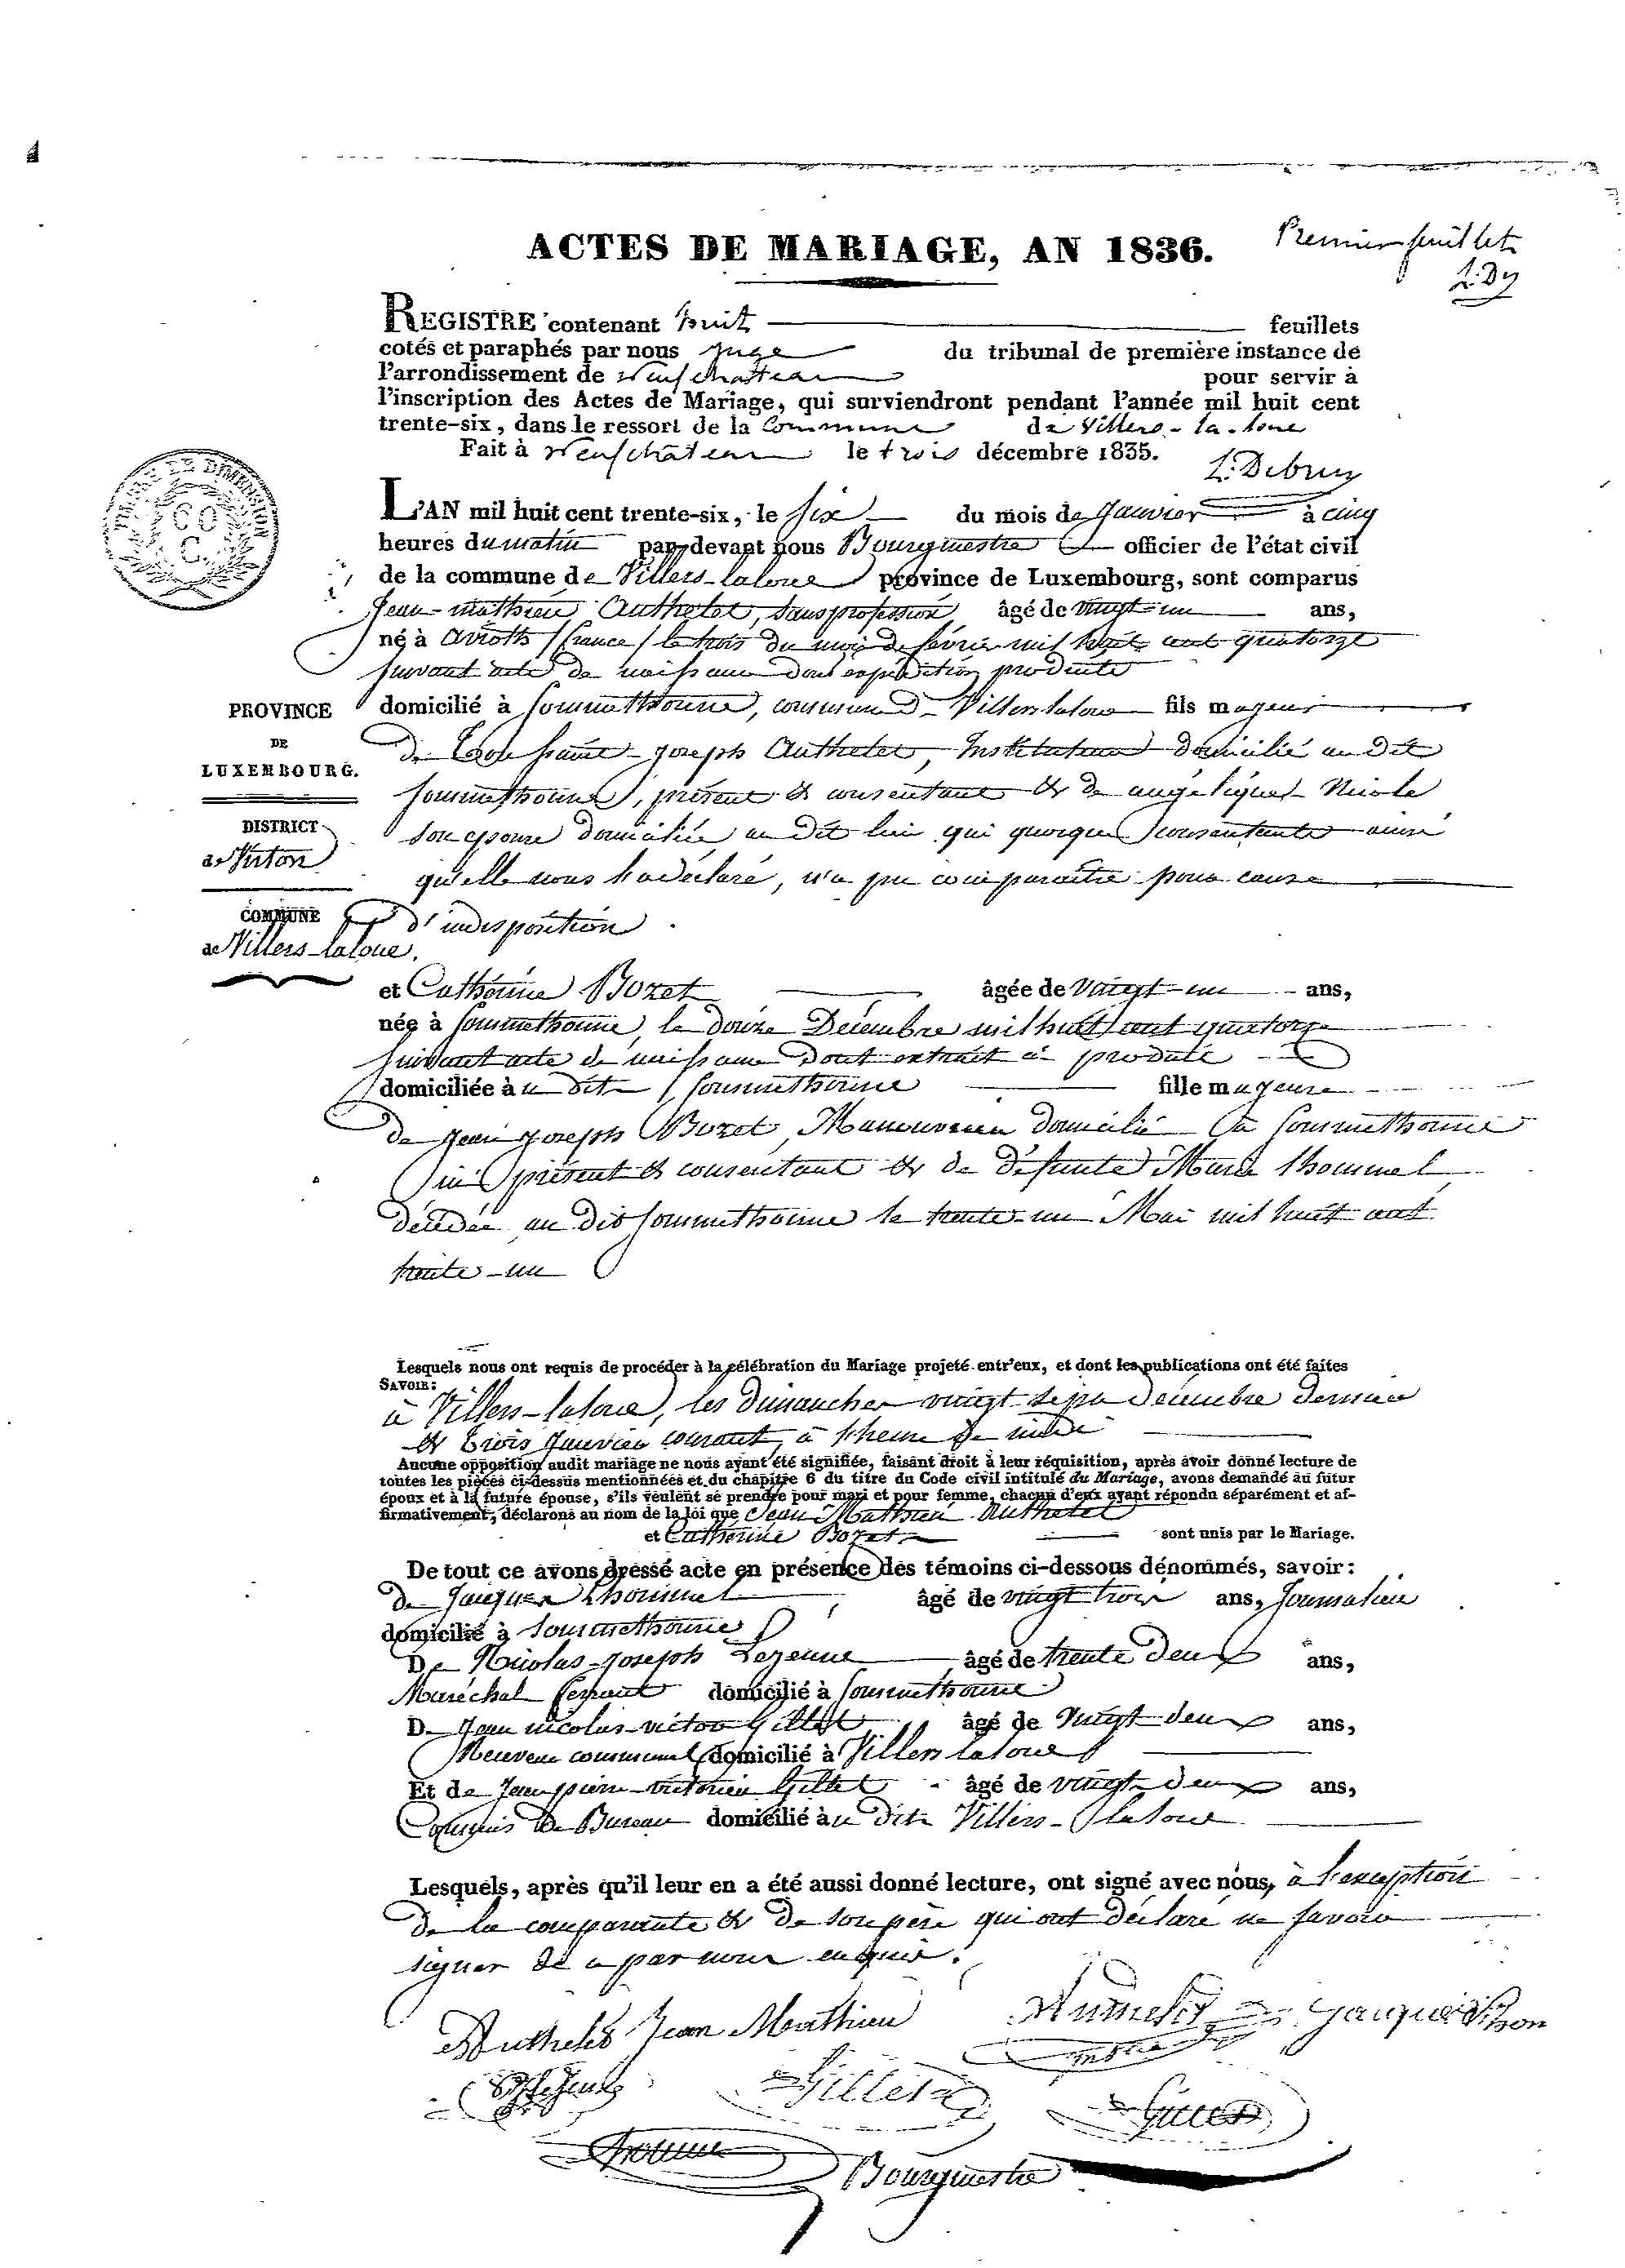 ACTES DE MARIAGE, AN 1836.
Premier feuillet
REGISTRE contenant huit feuillets
cotés et paraphés par nous juge du tribunal de première instance de
l'arrondissement de Neufchateau pour servir à
l'inscription des Actes de Mariage, qui surviendront pendant l'année mil huit cent
trente-six, dans le ressort de la Commune de Villers-la-loue
Fait à Neufchâteau le trois décembre 1835.
TIMBRE DE DIMENSION
60
C.
L'AN mil huit cent trente-six, le six du mois de Janvier à cinq
heures du matin par-devant nous Bourgmestre officier de l'état civil
de la commune de Villers-laloue province de Luxembourg, sont comparus
Jean-mathieu Authelet, sans profession âgé de vingt-un ans,
né à avioth / france / le trois du mois de février mil huit cent quatorze
suivant acte de naissance dont expédition produite
domicilié à Sommethonne, commune de Villers laloue fils majeur
de Toussaint-joseph Authelet, Instituteur domicilié au dit
Sommethonne, présent & consentant & de angélique Nicole
son epouse domiciliée au dit lieu qui quoique consentante ainsi
qu'elle nous l'a déclaré, n'a pu comparaître pour cause
d'indisposition.
PROVINCE
DE
LUXEMBOURG.
DISTRICT
de Virton
COMMUNE
de Villers-laloue.
et Cathérine Bozet âgée de vingt-un ans,
née à Sommethonne, le douze Décembre mil huit cent quatorze
suivant acte de naissance dont extrait a produit
domiciliée à u dit Sommethonne fille majeure
de Jean joseph Bozet, Manouvrier domicilié à Sommethonne
ici présent & consentant & de défunte Marie thommel
décédée au dit Sommethonne le trente-un Mai mil huit cent
trente-un
Lesquels nous ont requis de procéder à la célébration du Mariage projeté entr'eux, et dont les publications ont été faites
SAVOIR:
à Villers-laloue, les dimanches vingt sept décembre dernier
& trois Janvier courant, à l'heure de midi
Aucune opposition audit mariage ne nous ayant été signifiée, faisant droit à leur réquisition, après avoir donné lecture de
toutes les pièces ci-dessus mentionnées et du chapitre 6 du titre du Code civil intitulé du Mariage, avons demandé au futur
époux et à la future épouse, s'ils veulent se prendre pour mari et pour femme, chacun d'eux ayant répondu séparément et af-
firmativement, déclarons au nom de la loi que Jean Mathieu Authelet
et Cathérine Bozet sont unis par le Mariage.
De tout ce avons dressé acte en présence des témoins ci-dessous dénommés, savoir:
de Jacques thommel âgé de vingt trois ans, Journalier
domicilié à Sommethonne
De Nicolas-joseph Lejeune âgé de trente deux ans,
Maréchal ferrant domicilié à Sommethonne
De Jean nicolas-victor Gillet âgé de vingt-deux ans,
Receveur communal domicilié à Villers laloue
Et de Jean pierre-victorien Gillet âgé de vingt-deux ans,
Commis de Bureau domicilié à u dit Villers-laloue
Lesquels, après qu'il leur en a été aussi donné lecture, ont signé avec nous, à l'exception
de la comparante & de son père qui ont déclaré ne savoir
signer de ce par nous enquis.
Authelet Jean Mathieu
Authelet
Jacques
Gillet
Gillet
Bourgmestre